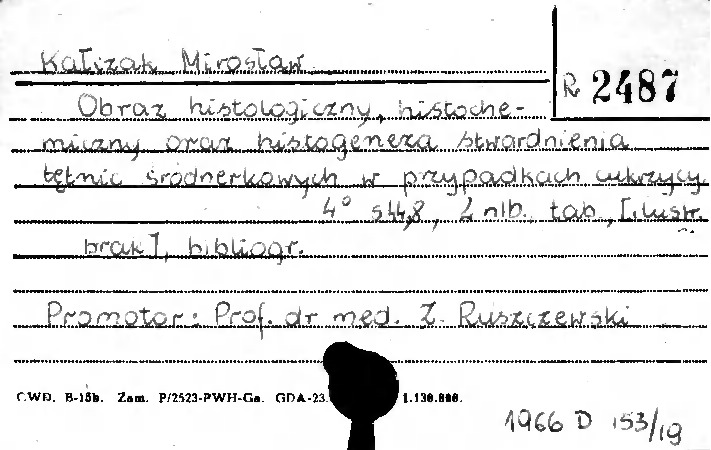 Kałczak Mirosław
R 2487
Obraz histologiczny, histoche-
miczny oraz histogeneza stwardnienia
tętnic śródnerkowych w przypadkach cukrzycy.
4° s. , 2 nlb. tab., [ilustr.
brak], bibliogr.
Promotor: Prof. dr med. Z. Ruszczewski
CWD. B-15b. Zam. P/2523-PWH-Ga. GDA-23. 1.130.000.
1966 D 153/19